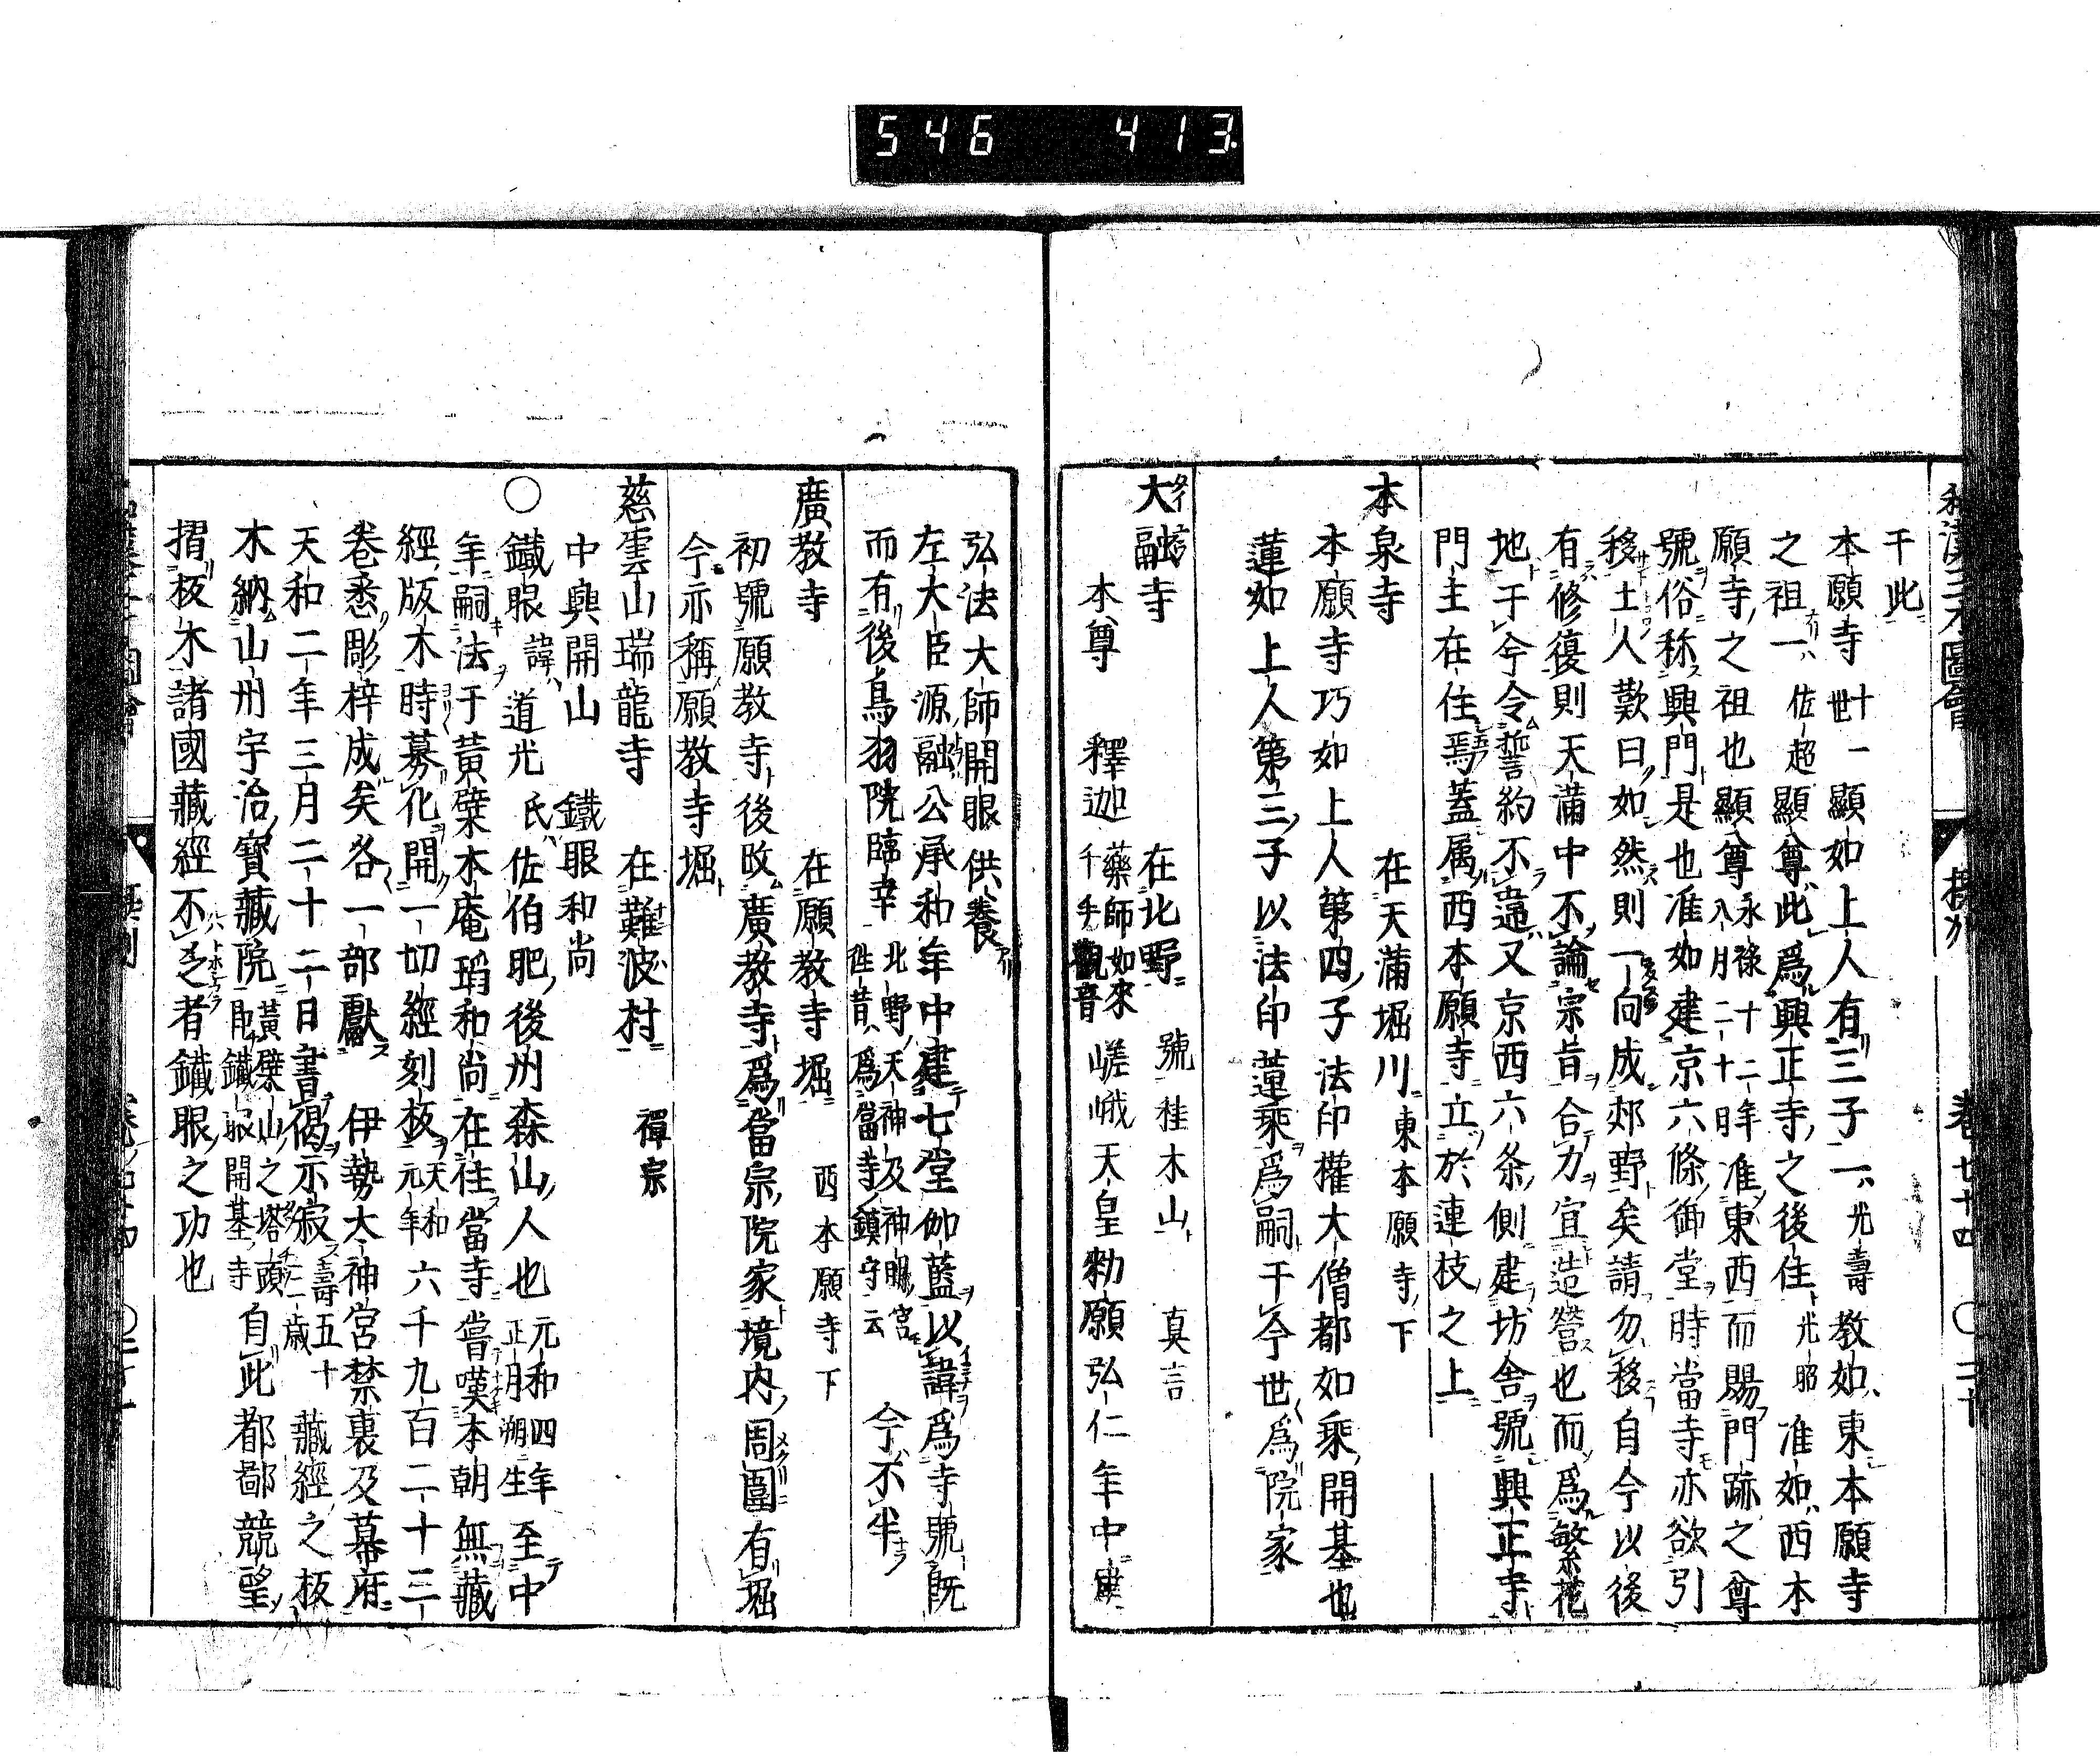 546 413
和漢三才圖會 攝州 卷七十四 ○二十
于此
本願寺十一世顯如上人有三子一光壽教如東本願寺
之祖一佐超顯尊此爲興正寺之後住光昭准如西本
願寺之祖也顯尊永祿十二年八月二十日准東西而賜門跡之尊
號俗称興門是也准如建京六條御堂時當寺亦欲引
移土人歎曰如然則一向成郊野矣請勿移自今以後
有修復則天満中不論宗旨合力宜造營也而爲繁花
地于今令誓約不違又京西六条側建坊舎號興正寺
門主在住焉蓋属西本願寺立於連枝之上
本泉寺 在天満堀川東本願寺下
本願寺巧如上人第四子法印權大僧都如乘開基也
蓮如上人第三子以法印蓮乘爲嗣于今世爲院家
大融寺 在北野 號桂木山 真言
本尊 釋迦 藥師如來 千手觀音 嵯峨天皇勅願弘仁年中建
弘法大師開眼供養
左大臣源融公承和年中建七堂伽藍以諱爲寺號既
而有後鳥羽院臨幸 北野天神及神明宮往昔爲當寺鎮守云 今不半
廣教寺 在願教寺堀 西本願寺下
初號願教寺後改廣教寺爲當宗院家境内周圍有堀
今亦稱願教寺堀
慈雲山瑞龍寺 在難波村 禪宗
中興開山 鐵眼和尚
○鐵眼諱道光氏佐伯肥後州森山人也元和四年正月朔生至中
年嗣法于黃檗木庵瑫和尚在住當寺嘗嘆本朝無藏
經版木時募化開一切經刻板天和元年六千九百二十三
卷悉彫梓成矣各一部獻 伊勢太神宮禁裏及幕府
天和二年三月二十二日書偈示寂壽五十三歲 藏經之板
木納山州宇治寶藏院黃檗山之塔頭鐵眼開基寺自此都鄙競望
摺板木諸國藏經不乏者鐵眼之功也